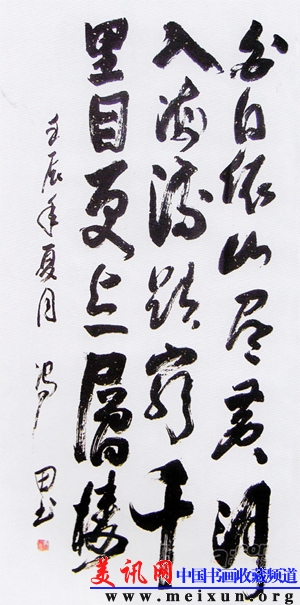 白日依山尽黄河
入海流欲穷千
里目更上一層楼
壬辰年夏月
美讯网 中国书画收藏频道
www.meixun.org